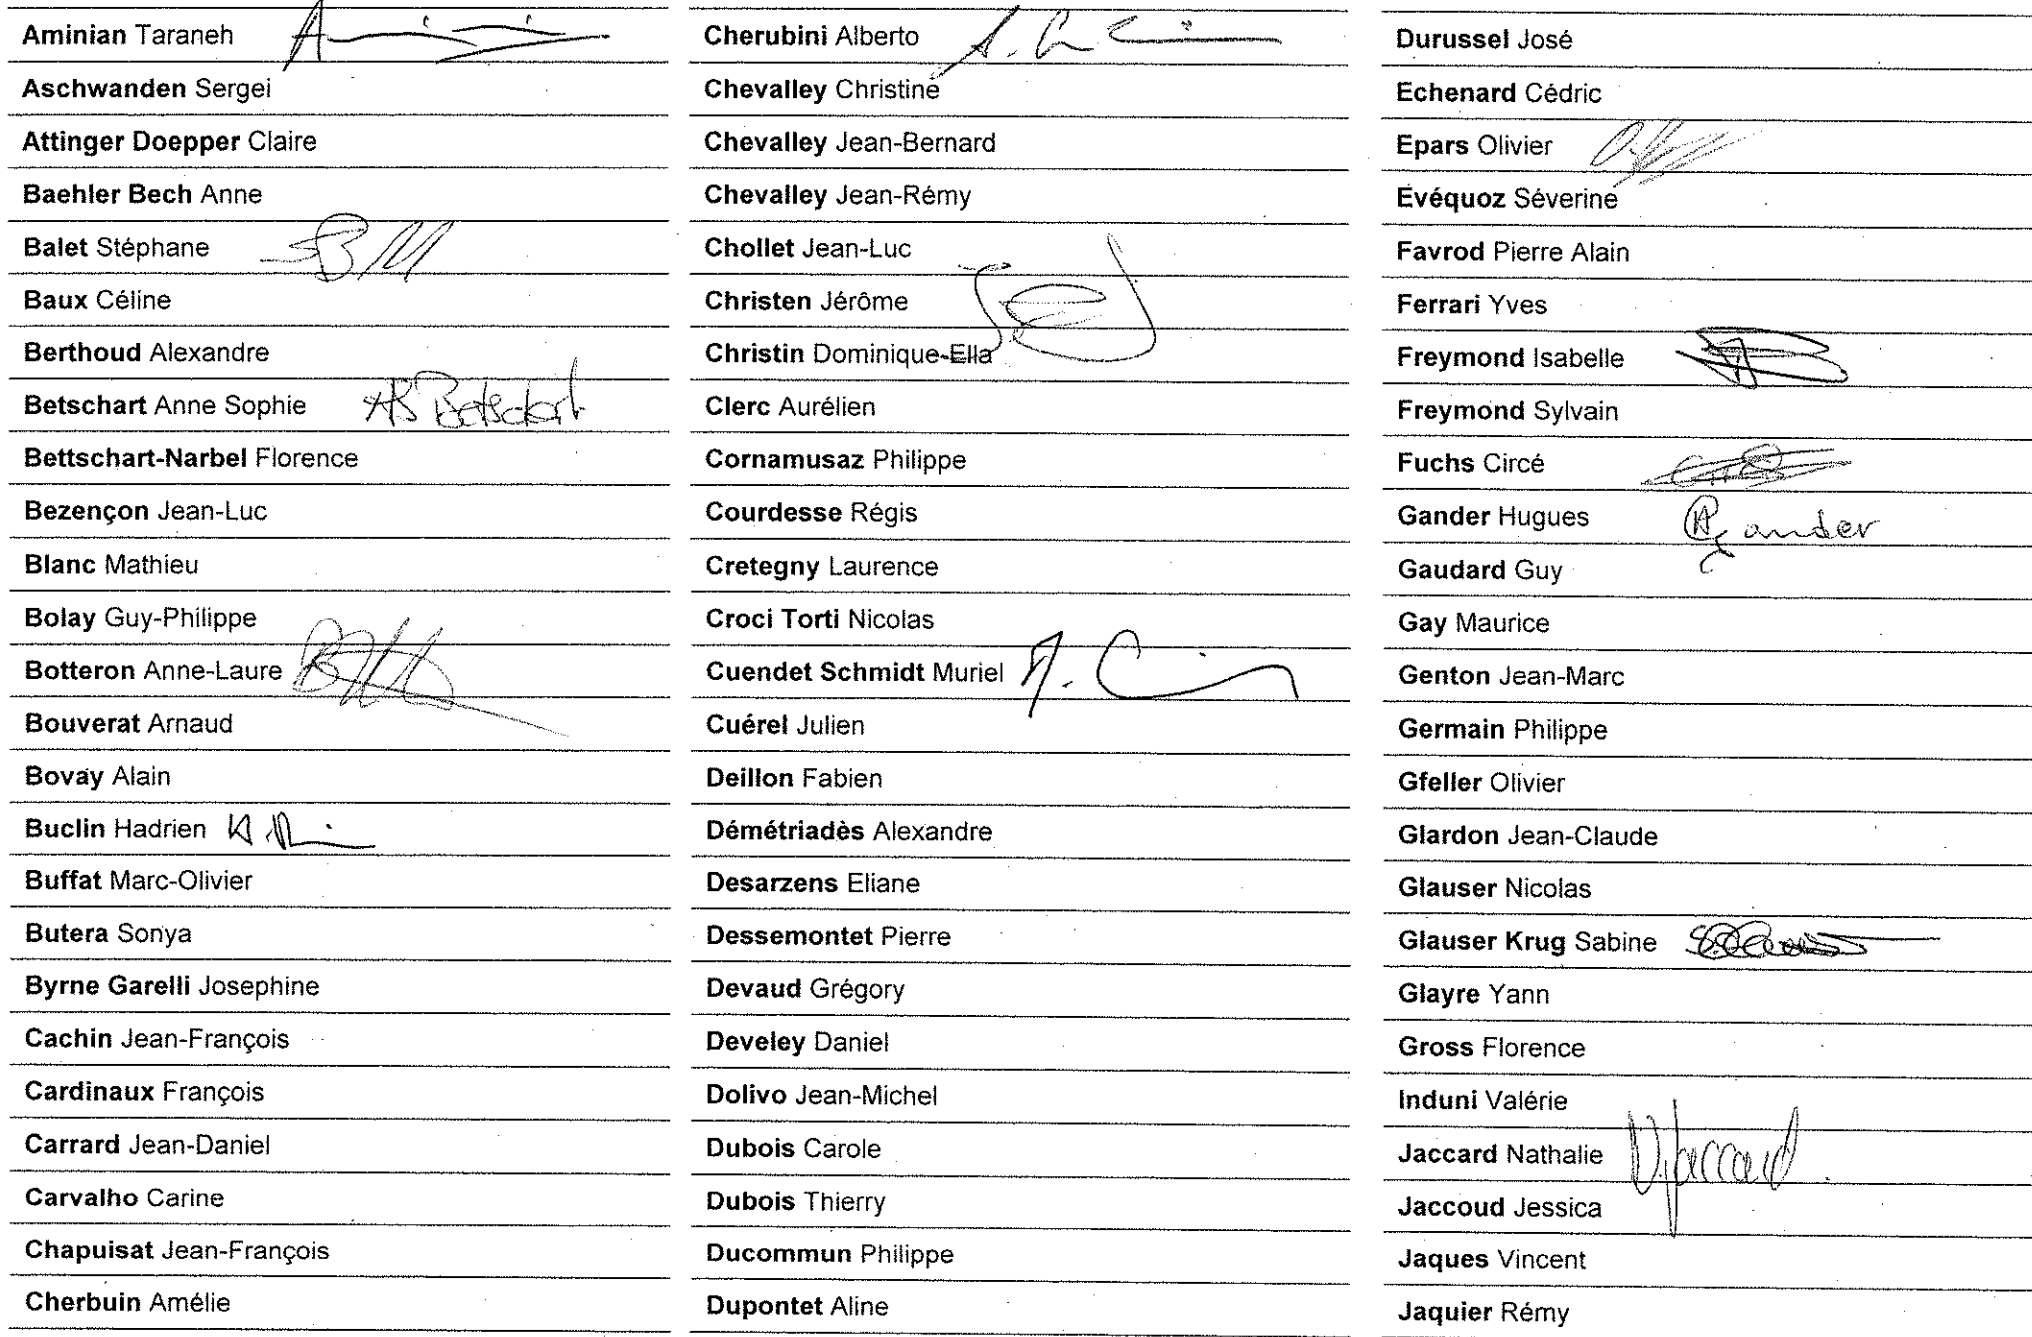 Aminian Taraneh
Aschwanden Sergei
Attinger Doepper Claire
Baehler Bech Anne
Balet Stéphane
Baux Céline
Berthoud Alexandre
Betschart Anne Sophie AS Betschart
Bettschart-Narbel Florence
Bezençon Jean-Luc
Blanc Mathieu
Bolay Guy-Philippe
Botteron Anne-Laure
Bouverat Arnaud
Bovay Alain
Buclin Hadrien
Buffat Marc-Olivier
Butera Sonya
Byrne Garelli Josephine
Cachin Jean-François
Cardinaux François
Carrard Jean-Daniel
Carvalho Carine
Chapuisat Jean-François
Cherbuin Amélie
Cherubini Alberto
Chevalley Christine
Chevalley Jean-Bernard
Chevalley Jean-Rémy
Chollet Jean-Luc
Christen Jérôme
Christin Dominique-Ella
Clerc Aurélien
Cornamusaz Philippe
Courdesse Régis
Cretegny Laurence
Croci Torti Nicolas
Cuendet Schmidt Muriel
Cuérel Julien
Deillon Fabien
Démétriadès Alexandre
Desarzens Eliane
Dessemontet Pierre
Devaud Grégory
Develey Daniel
Dolivo Jean-Michel
Dubois Carole
Dubois Thierry
Ducommun Philippe
Dupontet Aline
Durussel José
Echenard Cédric
Epars Olivier
Evéquoz Séverine
Favrod Pierre Alain
Ferrari Yves
Freymond Isabelle
Freymond Sylvain
Fuchs Circé
Gander Hugues
Gaudard Guy
Gay Maurice
Genton Jean-Marc
Germain Philippe
Gfeller Olivier
Glardon Jean-Claude
Glauser Nicolas
Glauser Krug Sabine
Glayre Yann
Gross Florence
Induni Valérie
Jaccard Nathalie N. Jaccard
Jaccoud Jessica
Jaques Vincent
Jaquier Rémy